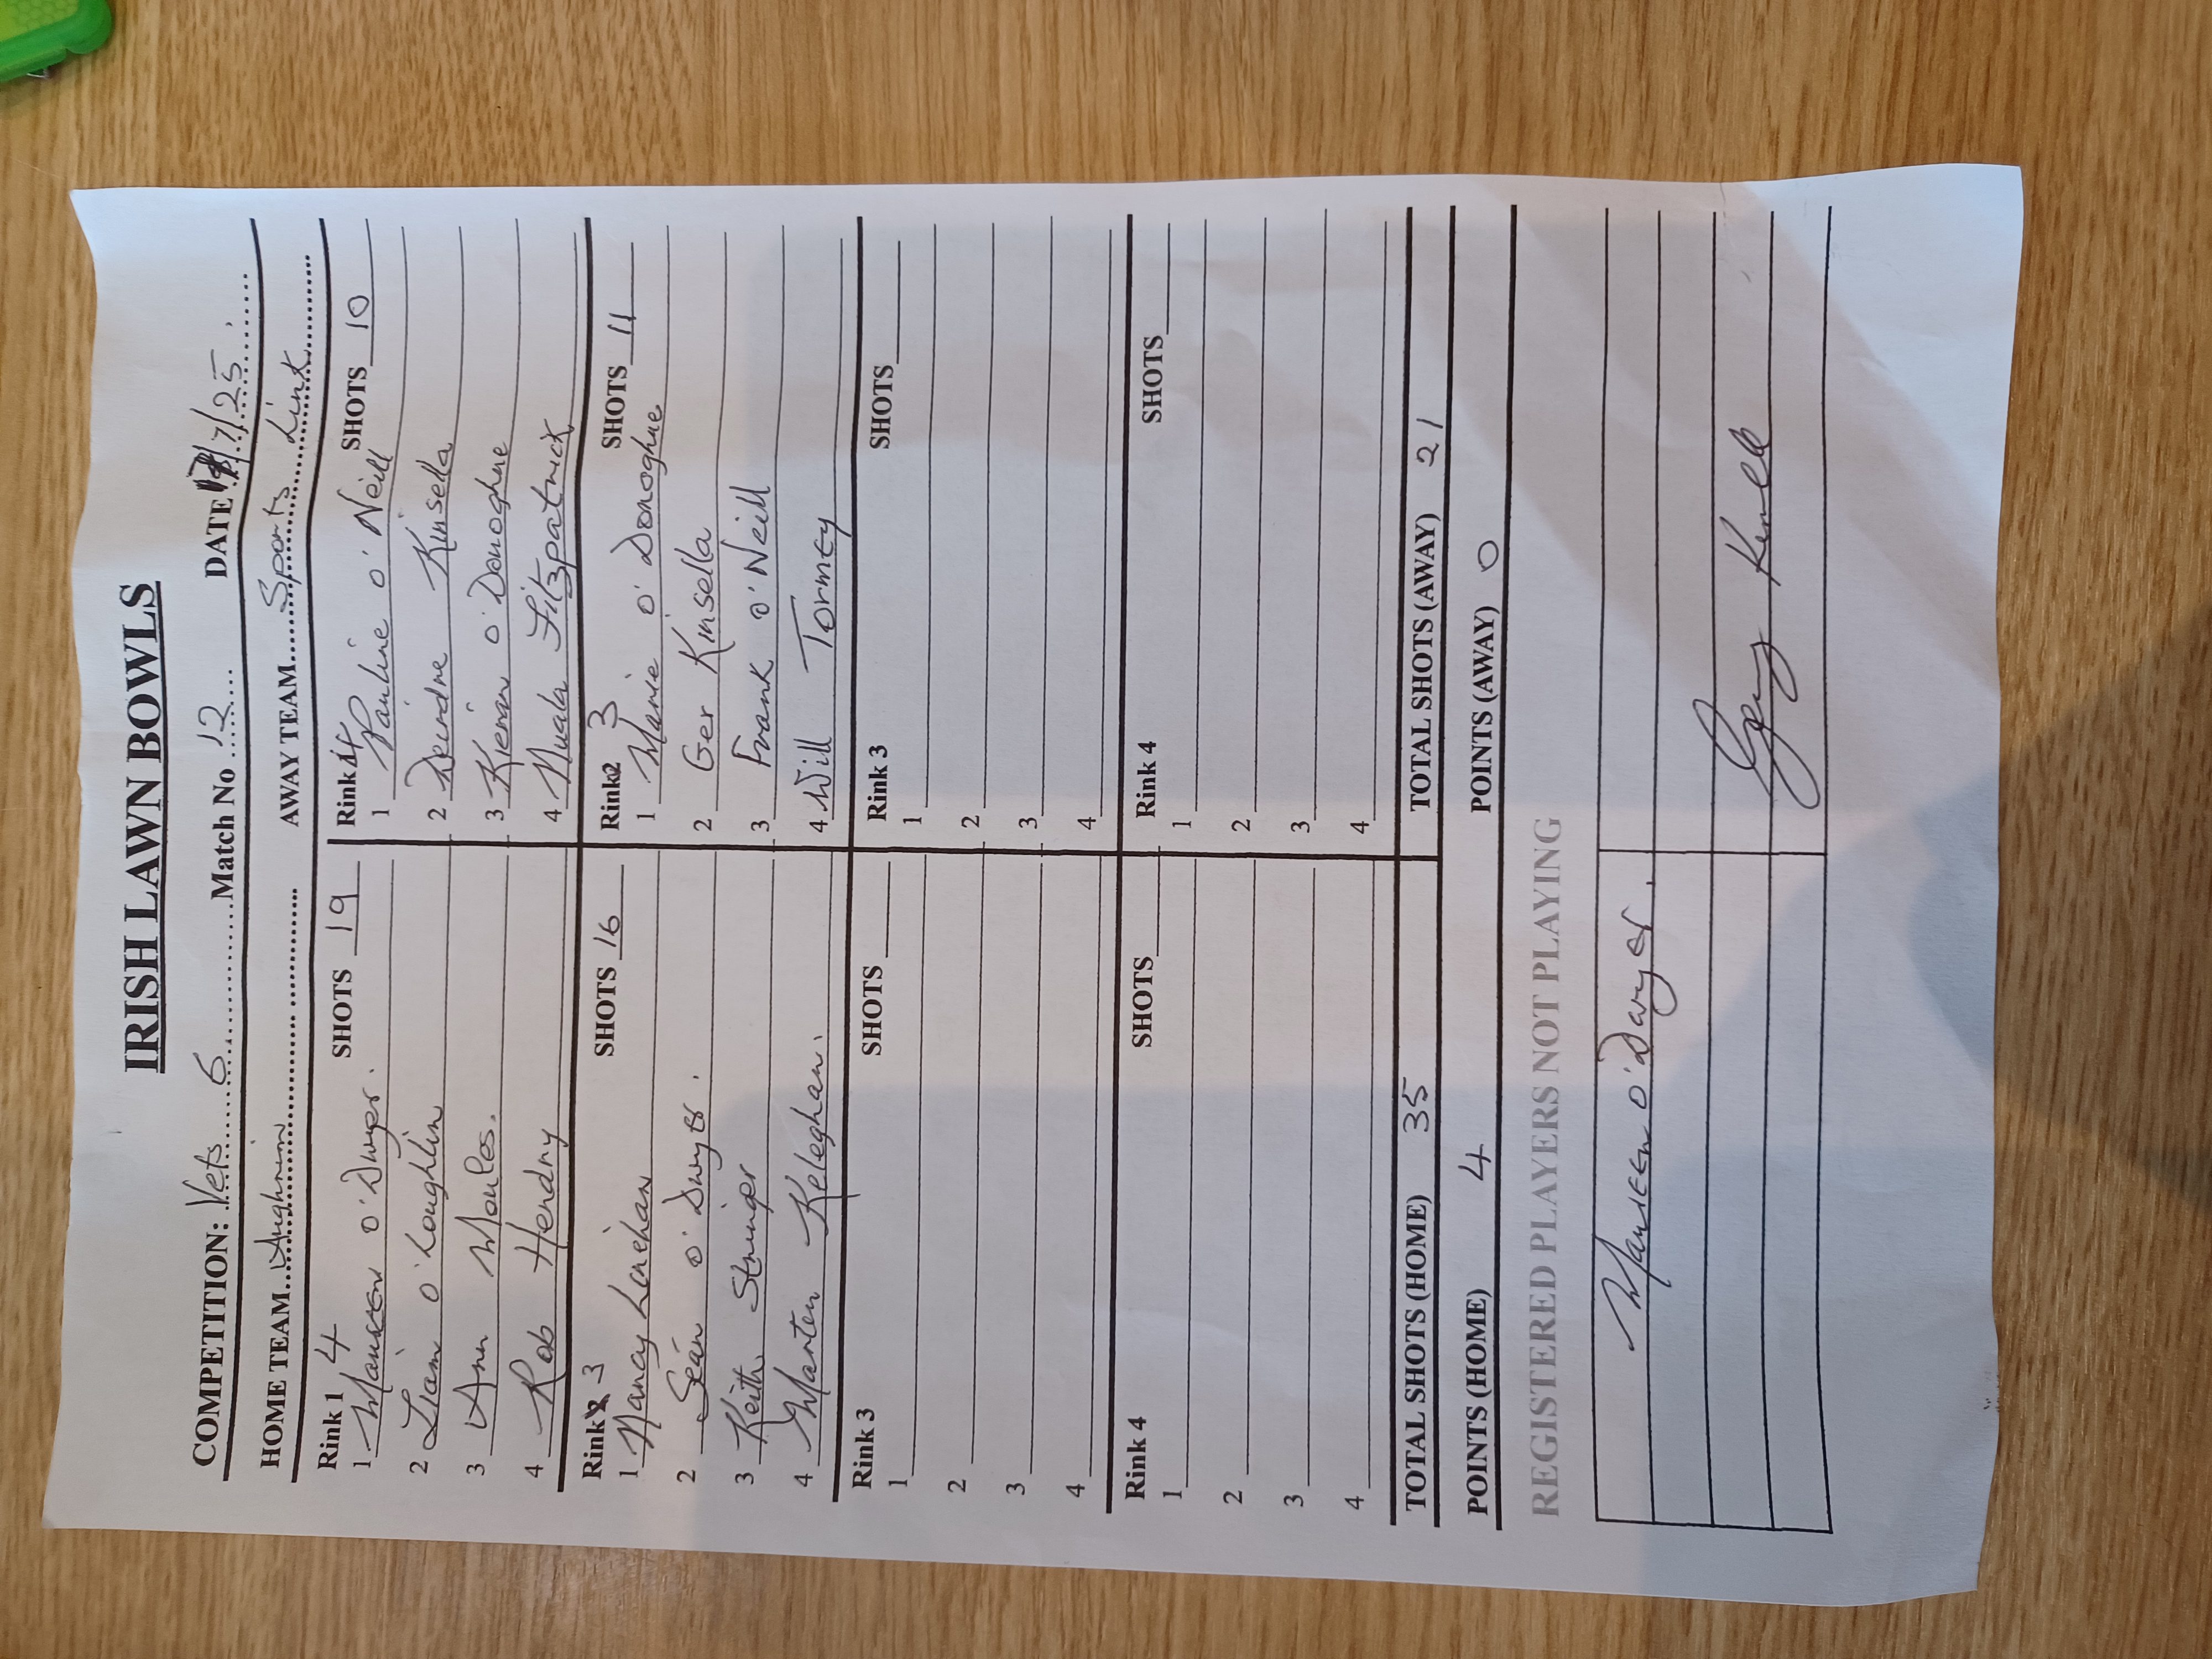 IRISH LAWN BOWLS
COMPETITION: Vets 6 Match No 12 DATE /7/25
HOME TEAM Aughrim AWAY TEAM Sports Link
Rink 1 4 SHOTS 19 Rink 4 SHOTS 10
1 Maureen O'Dwyer. 1 Pauline O'Neill
2 Liam O'Loughlin 2 Deirdre Kinsella
3 Ann Moules. 3 Kieran O'Donoghue
4 Rob Hendry 4 Nuala Fitzpatrick
Rink 3 SHOTS 16 Rink 2 3 SHOTS 11
1 Nancy Lenihan 1 Marie O'Donoghue
2 Seán O'Dwyer. 2 Ger Kinsella
3 Keith Stringer 3 Frank O'Neill
4 Marten Keleghan. 4 Will Tormey
Rink 3 SHOTS Rink 3 SHOTS
1 1
2 2
3 3
4 4
Rink 4 SHOTS Rink 4 SHOTS
1 1
2 2
3 3
4 4
TOTAL SHOTS (HOME) 35 TOTAL SHOTS (AWAY) 21
POINTS (HOME) 4 POINTS (AWAY) 0
REGISTERED PLAYERS NOT PLAYING
Maureen O'Dwyer.